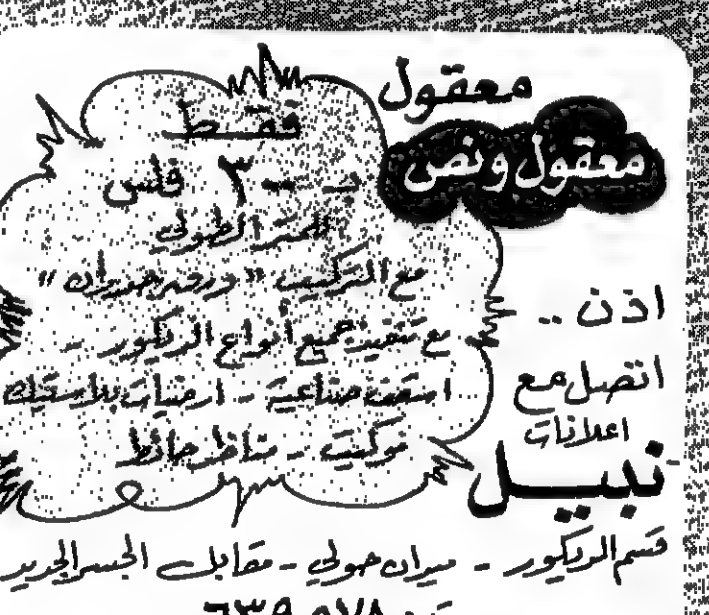 معقول
معقول ونص
فقط
بـ ٣٠٠ فلس
للمتر الطولي
مع التركيب "ورق جدران"
مع تنفيذ جميع أنواع الديكور -
اسقف صناعية - ارضيات بلاستيك
موكيت - مناظر حائط
اذن ..
اتصل مع
اعلانات
نبيل
قسم الديكور - ميدان حولي - مقابل الجسر الجديد